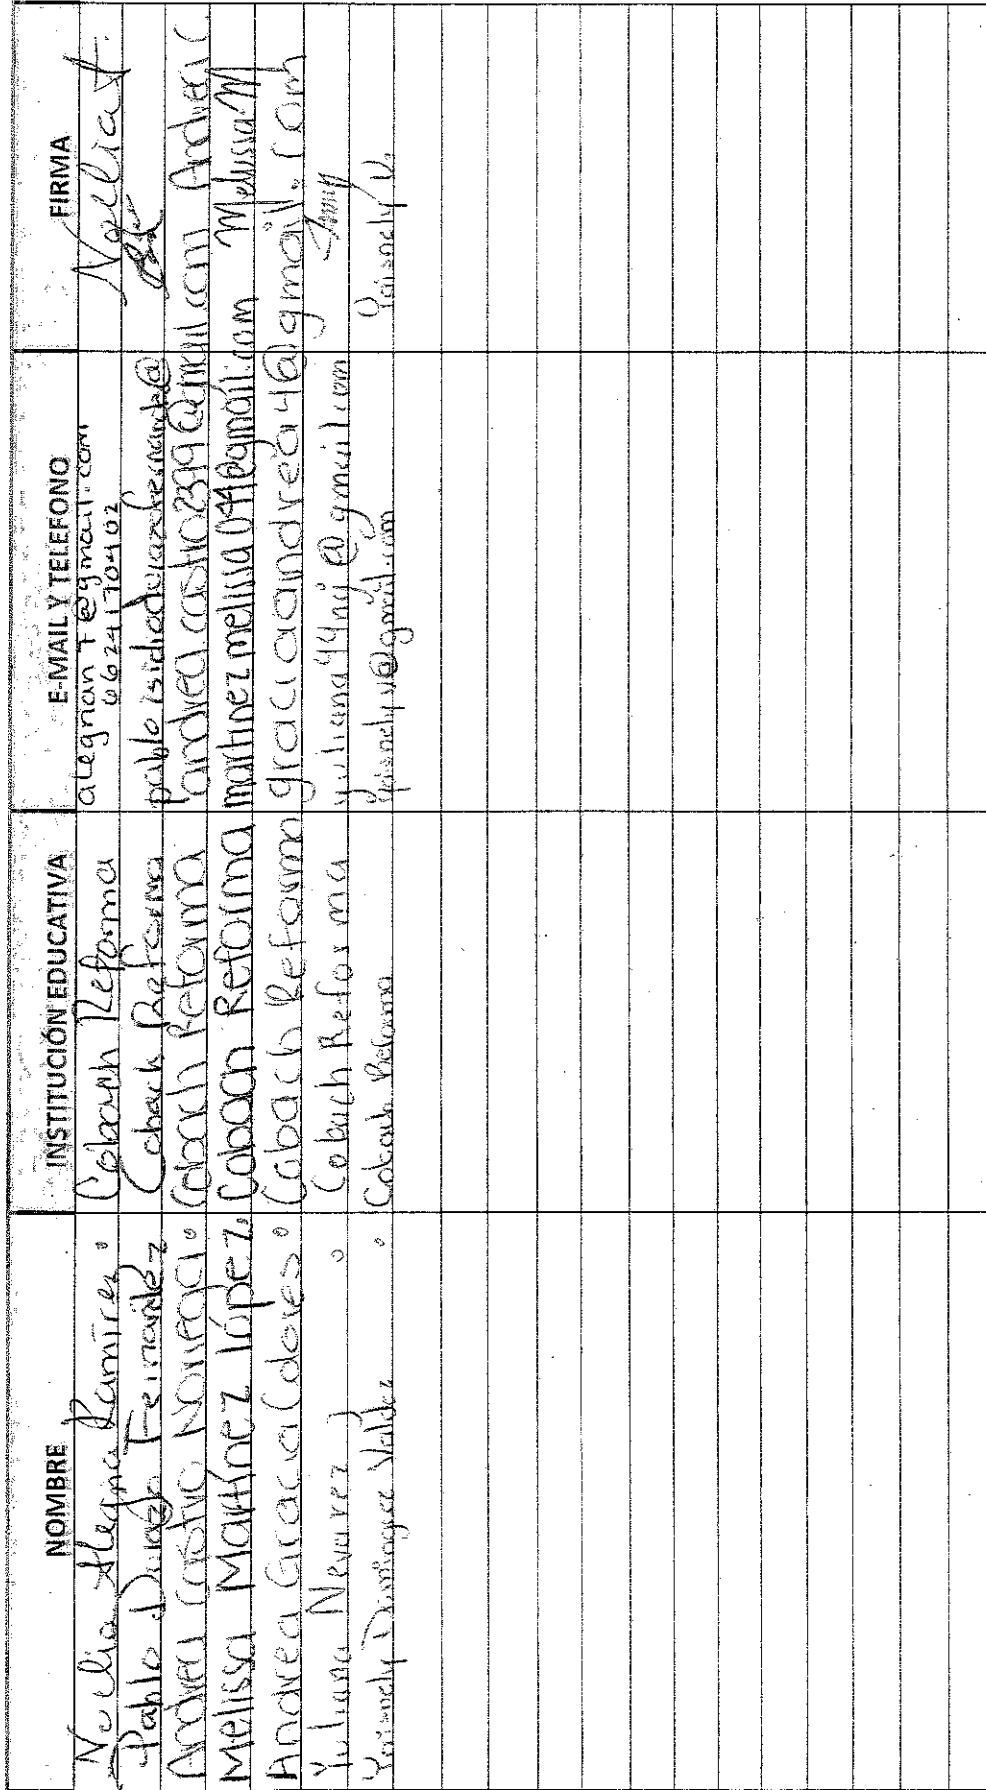 NOMBRE INSTITUCIÓN EDUCATIVA E-MAIL Y TELEFONO FIRMA
Noelia Alegria Ramírez. Cobach Reforma alegnan7@gmail.com Noelia
6624170402
Pablo Durazo Fernández Cobach Reforma pabloisidiodurazofernandez@
Andrea Castro Noriega. Cobach Reforma andrea.castro2399@gmail.com Andrea C
Melissa Martínez López. Cobach Reforma martinezmelissa099@gmail.com Melissa M
Andrea Gracia Dolores. Cobach Reforma graciaandrea46@gmail.com
Yuliana Nevarez J. Cobach Reforma yuliana44nj@gmail.com
Yaisnely Dominguez Valdez. Cobach Reforma yaisnelyv@gmail.com Yaisnely V.